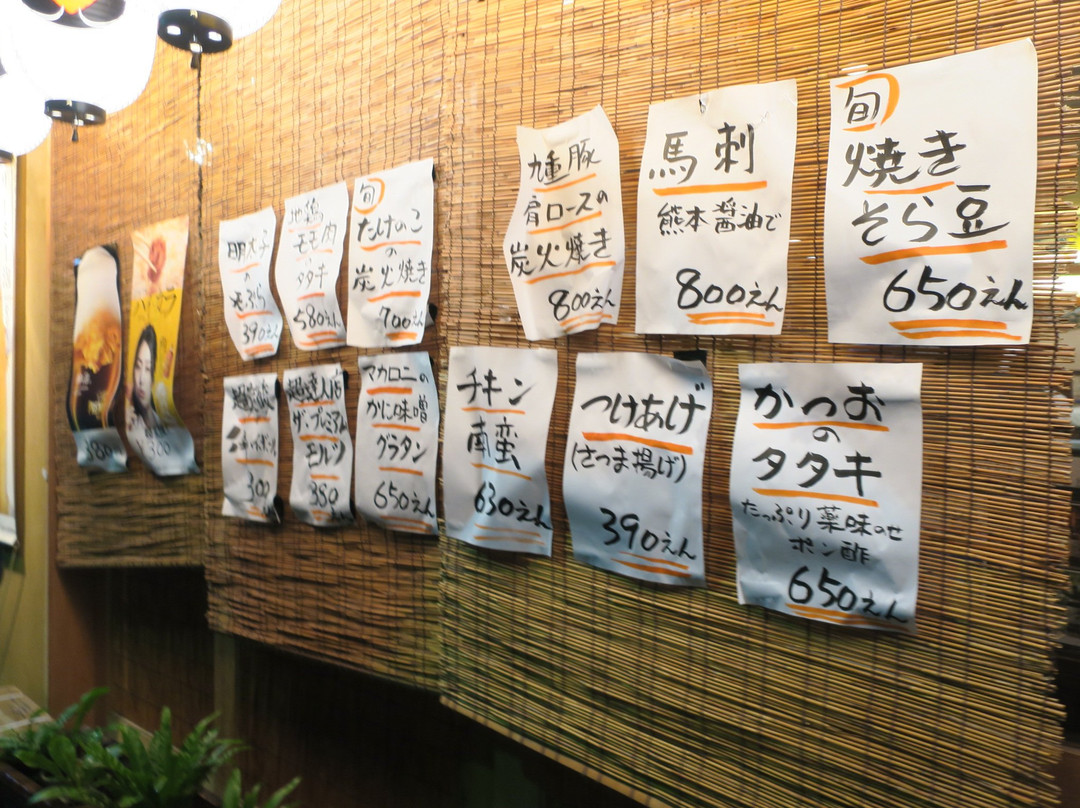 明太子
の
天ぷら
390えん
地鶏
モモ肉
の
タタキ
580えん
旬
たけのこ
の
炭火焼き
700えん
九重豚
肩ロースの
炭火焼き
800えん
馬刺
熊本醤油で
800えん
旬
焼き
そら豆
650えん
380
ハイボール
300
300
超達人店
ザ・プレミアム
モルツ
350
マカロニの
かに味噌
グラタン
650えん
チキン
南蛮
630えん
つけあげ
(さつま揚げ)
390えん
かつお
の
タタキ
たっぷり薬味のせ
ポン酢
650えん